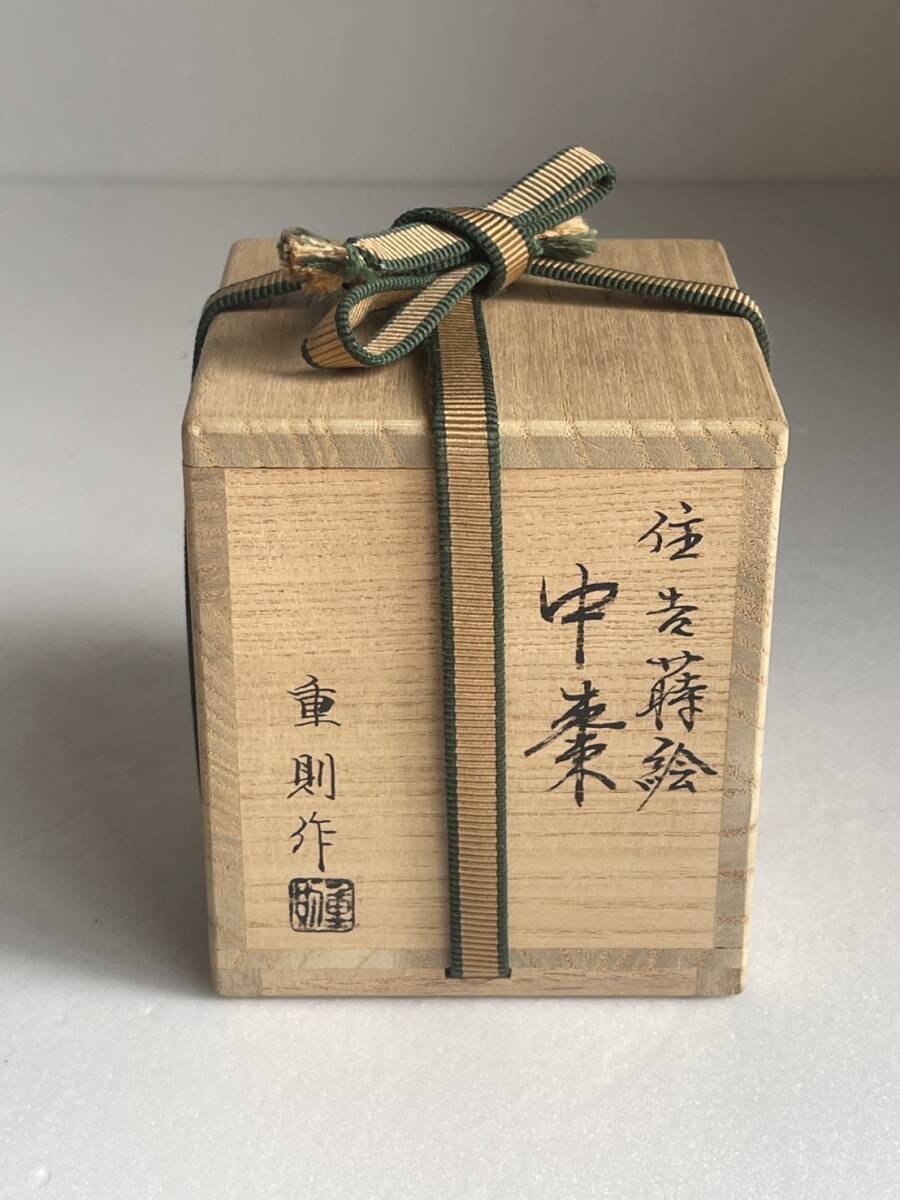 住吉蒔絵
中棗
重則作
重則